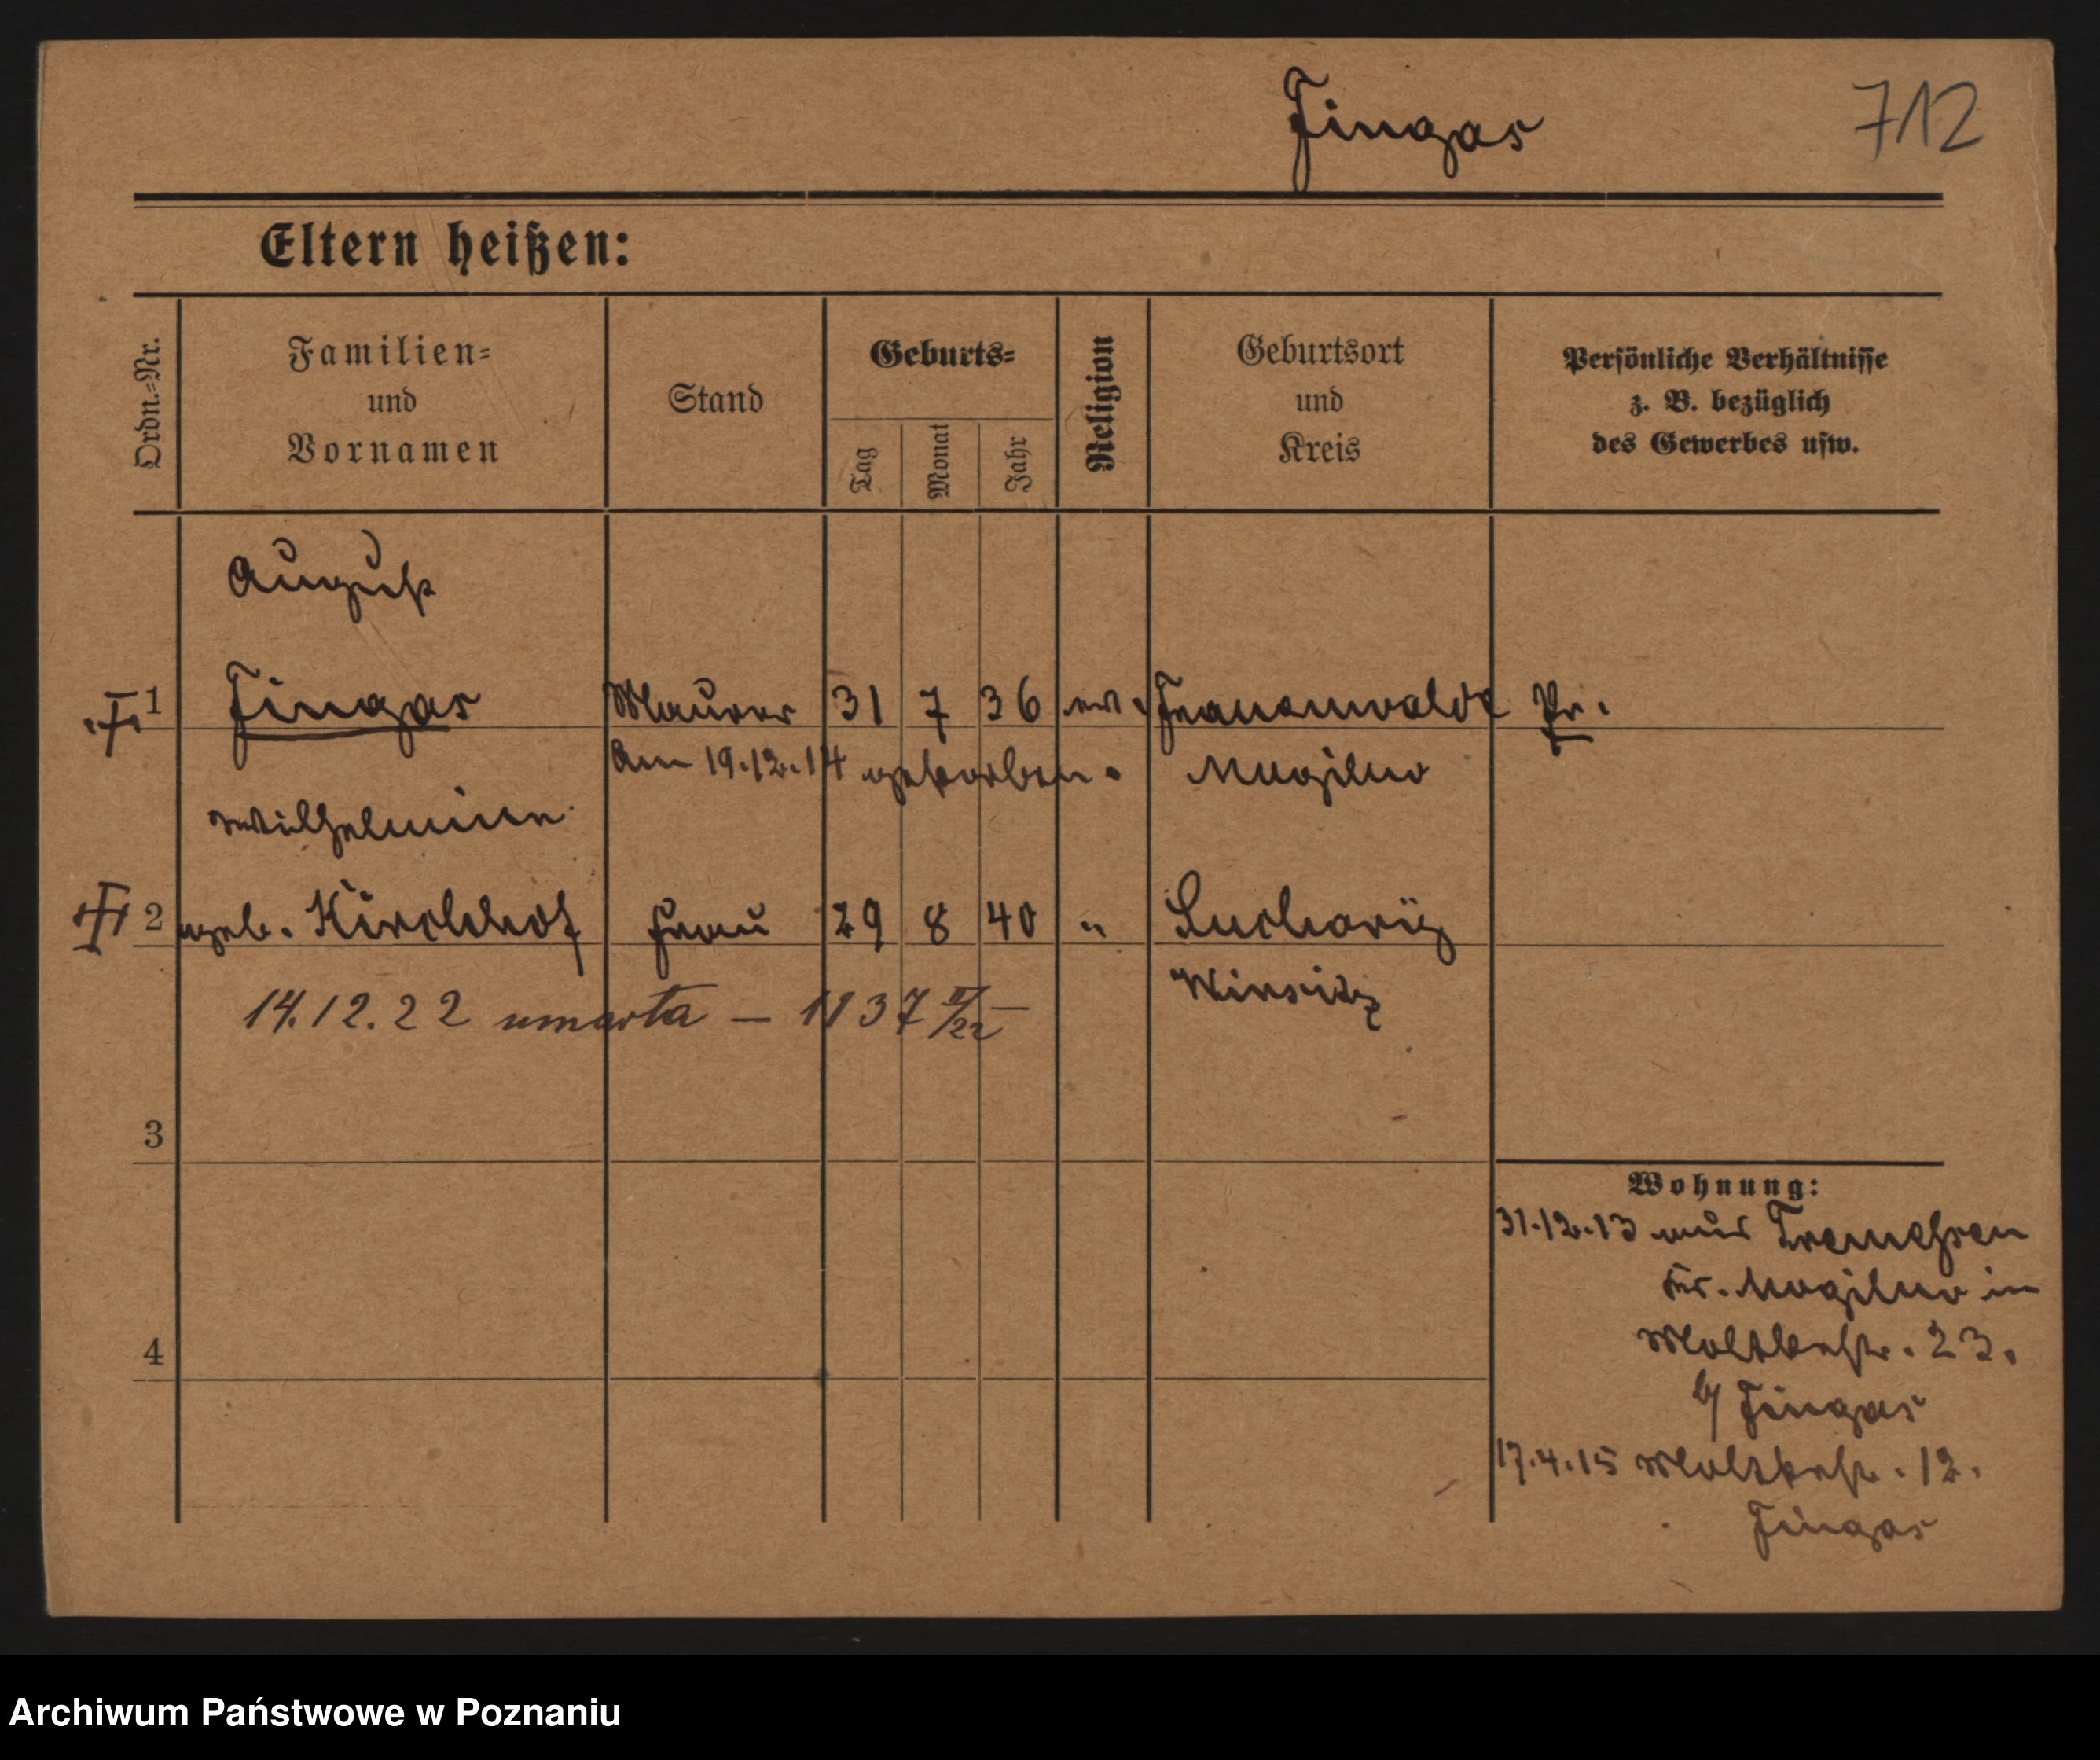 Jingas 712
Eltern heißen:
Ordn.=Nr.
Familien=
und
Vornamen
Stand
Geburts=
Tag
Monat
Jahr
Religion
Geburtsort
und
Kreis
Persönliche Verhältnisse
z. B. bezüglich
des Gewerbes usw.
August
1 Jingas Maurer 31 7 36 ev. Frauenwalde Pr.
Am 19.12.14 gestorben. Mogilno
Wilhelmine
2 geb. Kirchhof Frau 29 8 40 "
14.12.22 umarła — 1137 II/22
3
4
Wohnung:
31.12.13 aus Tremessen
Kr. Mogilno in
Moltkestr. 23.
b/ Jingas
17.4.15 Moltkestr. 12.
Jingas
Archiwum Państwowe w Poznaniu